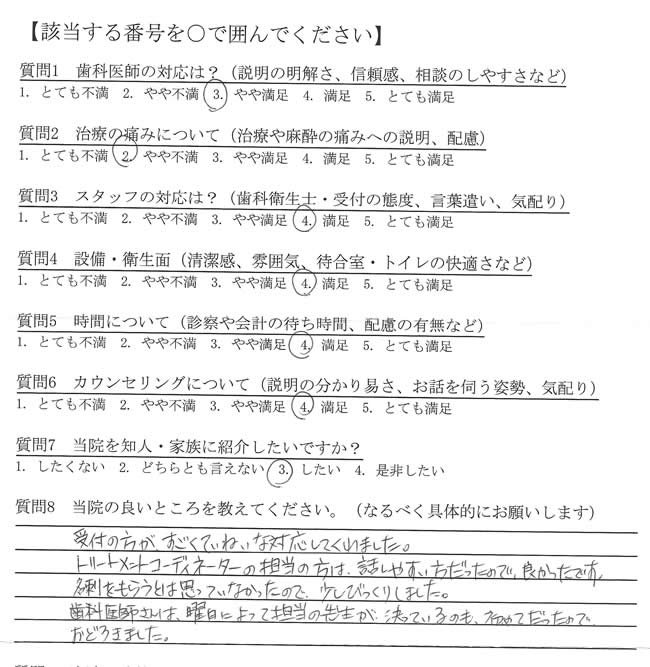 【該当する番号を○で囲んでください】
質問1 歯科医師の対応は？（説明の明解さ、信頼感、相談のしやすさなど）
1. とても不満 2. やや不満 3. やや満足 4. 満足 5. とても満足
質問2 治療の痛みについて（治療や麻酔の痛みへの説明、配慮）
1. とても不満 2. やや不満 3. やや満足 4. 満足 5. とても満足
質問3 スタッフの対応は？（歯科衛生士・受付の態度、言葉遣い、気配り）
1. とても不満 2. やや不満 3. やや満足 4. 満足 5. とても満足
質問4 設備・衛生面（清潔感、雰囲気、待合室・トイレの快適さなど）
1. とても不満 2. やや不満 3. やや満足 4. 満足 5. とても満足
質問5 時間について（診察や会計の待ち時間、配慮の有無など）
1. とても不満 2. やや不満 3. やや満足 4. 満足 5. とても満足
質問6 カウンセリングについて（説明の分かり易さ、お話を伺う姿勢、気配り）
1. とても不満 2. やや不満 3. やや満足 4. 満足 5. とても満足
質問7 当院を知人・家族に紹介したいですか？
1. したくない 2. どちらとも言えない 3. したい 4. 是非したい
質問8 当院の良いところを教えてください。（なるべく具体的にお願いします）
受付の方が、すごくていねいな対応してくれました。
トリートメントコーディネーターの担当の方は、話しやすい方だったので、良かったです。
名刺をもらうとは思っていなかったので、少しびっくりしました。
歯科医師さんは、曜日によって担当の先生が、決っているのも、初めてだったので
おどろきました。